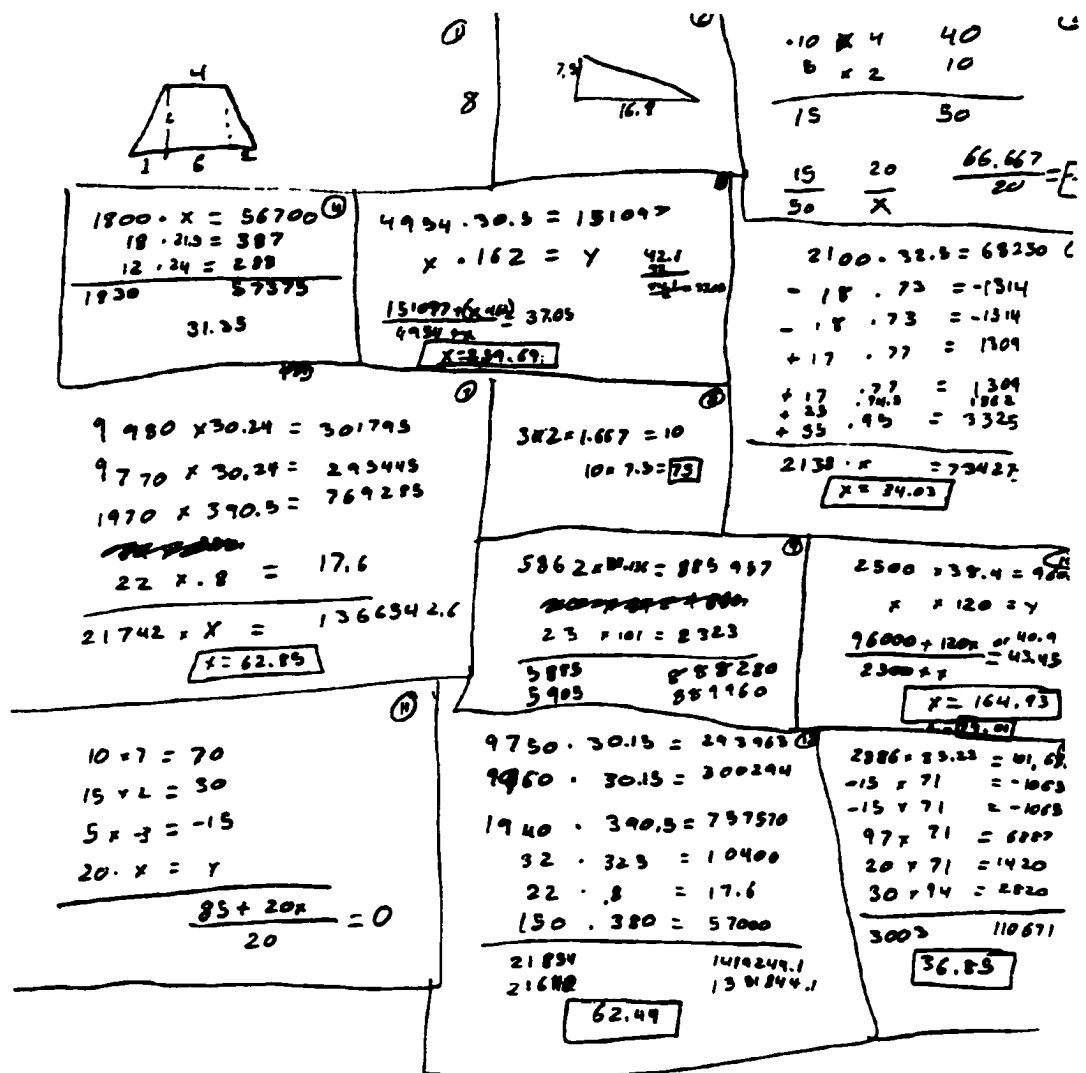 4
1 6 2
①
8
7.5
16.9
·10 x 4 40
5 x 2 10
15 50
15 20 66.667
50 x 20 =
1800 · x = 56700
18 · 21.5 = 387
12 · 24 = 288
1830 57375
31.35
4954 · 30.5 = 151097
x · 162 = y
42.1
151097+(x·162) = 37.05
4954+x
2100 · 32.5 = 68250
- 18 · 73 = -1314
- 18 · 73 = -1314
+ 17 · 77 = 1309
+ 17 · 77 = 1309
+ 35 · 95 = 3325
2138 · x = 73427
x = 34.03
⑦
9 980 x30.24 = 301795
9770 x 30.24 = 295445
1970 x 390.5 = 769285
22 x .8 = 17.6
21742 x X = 1366542.6
x = 62.85
⑧
3x2x1.667 = 10
10x 7.5=75
⑨
= 885 957
23 x 101 = 2323
5885 888280
5905 889960
2500 x 38.4 =
x x 120 = y
96000 + 120x or 40.9
= 43.45
2500 + x
x = 164.93
10 x 7 = 70
15 x 2 = 30
5 x -3 = -15
20 · x = Y
85 + 20x = 0
20
9750 · 30.15 = 293963
30.15 = 300294
1940 · 390.5 = 757570
32 · 325 = 10400
22 · .8 = 17.6
150 · 380 = 57000
21854 1419244.1
62.49
-15 x 71 = -1065
-15 x 71 = -1065
97 x 71 = 6887
20 x 71 = 1420
30 x 94 = 2820
3003 110671
36.85